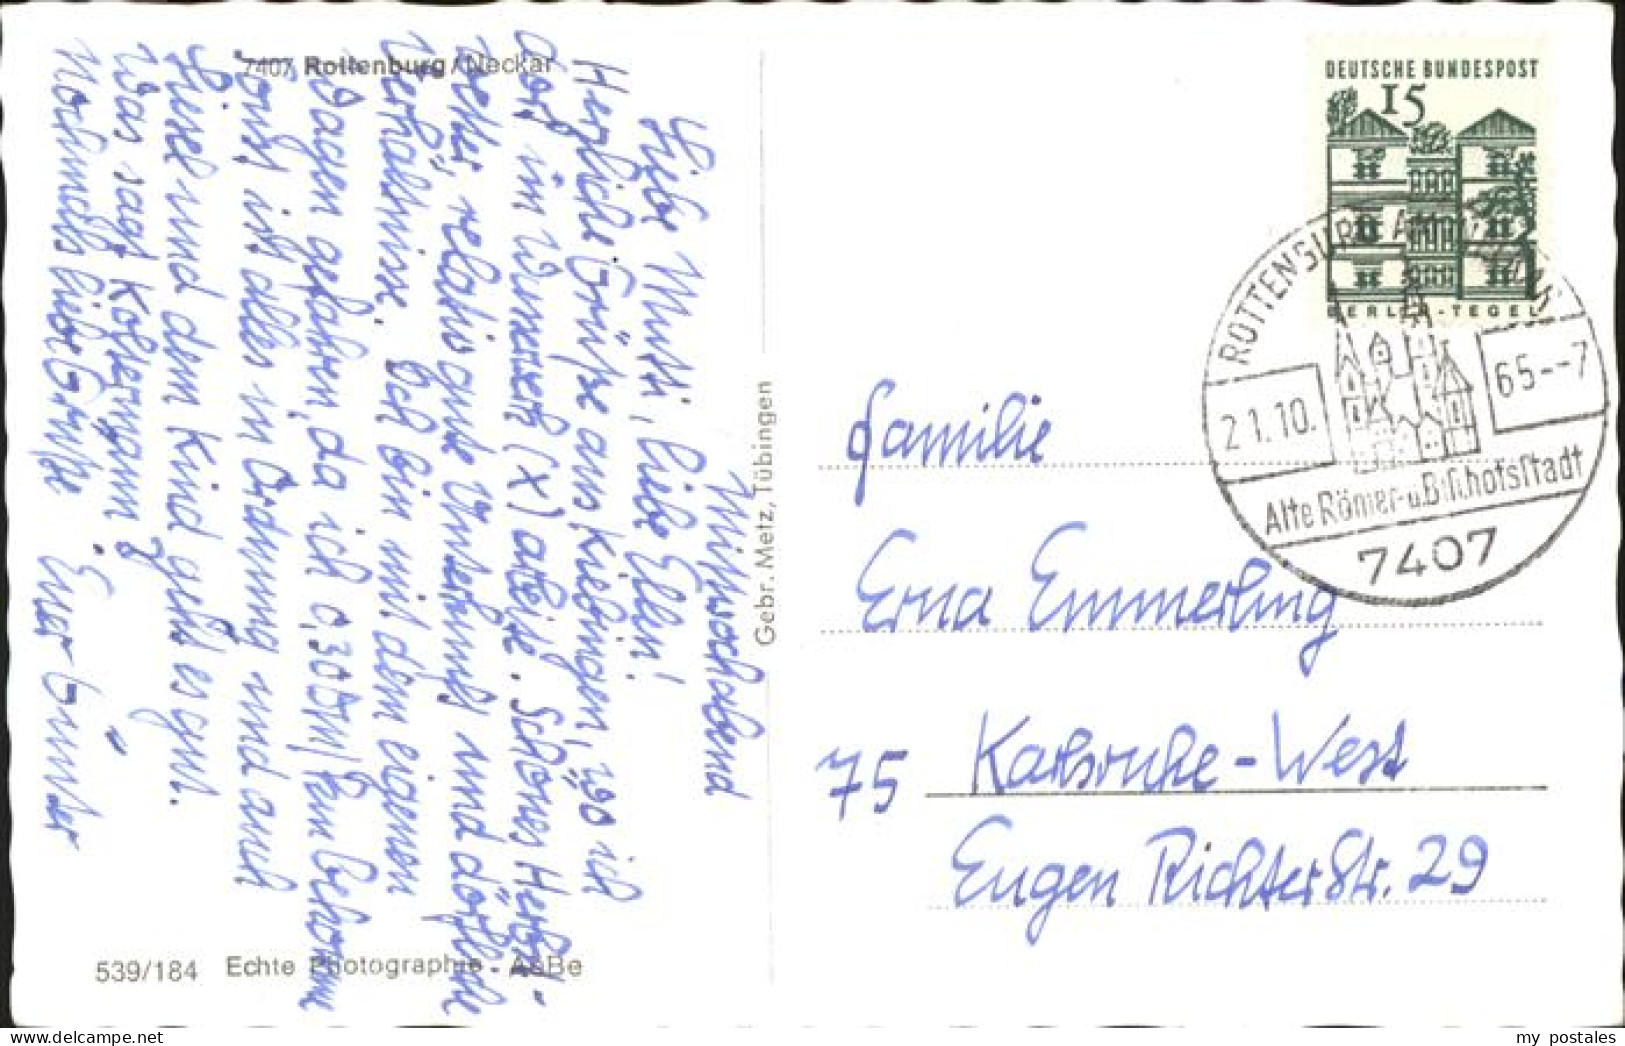 7407 Rottenburg/Neckar
Mittwochabend
Liebe Mutti, liebe Ellen!
Herzliche Grüße aus Kiebingen, wo ich
dort im Winkel (x) arbeite. Schönes Herbst-
wetter, relativ gute Unterkunft und örtliche
Verhältnisse. Ich bin mit dem eigenen
Wagen gefahren, da ich 0,30 DM/km bekomme
Sonst ist alles in Ordnung und auch
Lisel und dem Kind geht es gut.
Was sagt Kollermann?
Nochmals liebe Grüße Euer Günter
539/184 Echte Photographie - AeBe
Gebr. Metz, Tübingen
DEUTSCHE BUNDESPOST
15
BERLIN-TEGEL
ROTTENBURG AM NECKAR
21.10. 65--7
Alte Römer-u.Bischofsstadt
7407
Familie
Erna Emmerling
75 Karlsruhe-West
Eugen Richter Str. 29
my postales